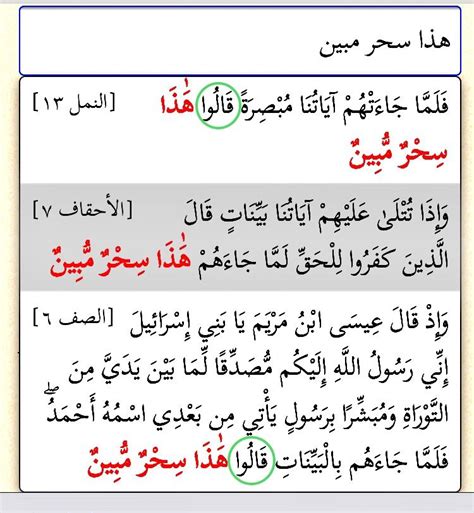 هذا سحر مبين
فَلَمَّا جَاءَتْهُمْ آيَاتُنَا مُبْصِرَةً قَالُوا هَٰذَا [النمل ١٣]
سِحْرٌ مُّبِينٌ
وَإِذَا تُتْلَىٰ عَلَيْهِمْ آيَاتُنَا بَيِّنَاتٍ قَالَ [الأحقاف ٧]
الَّذِينَ كَفَرُوا لِلْحَقِّ لَمَّا جَاءَهُمْ هَٰذَا سِحْرٌ مُّبِينٌ
وَإِذْ قَالَ عِيسَى ابْنُ مَرْيَمَ يَا بَنِي إِسْرَائِيلَ [الصف ٦]
إِنِّي رَسُولُ اللَّهِ إِلَيْكُم مُّصَدِّقًا لِّمَا بَيْنَ يَدَيَّ مِنَ
التَّوْرَاةِ وَمُبَشِّرًا بِرَسُولٍ يَأْتِي مِن بَعْدِي اسْمُهُ أَحْمَدُ ۖ
فَلَمَّا جَاءَهُم بِالْبَيِّنَاتِ قَالُوا هَٰذَا سِحْرٌ مُّبِينٌ